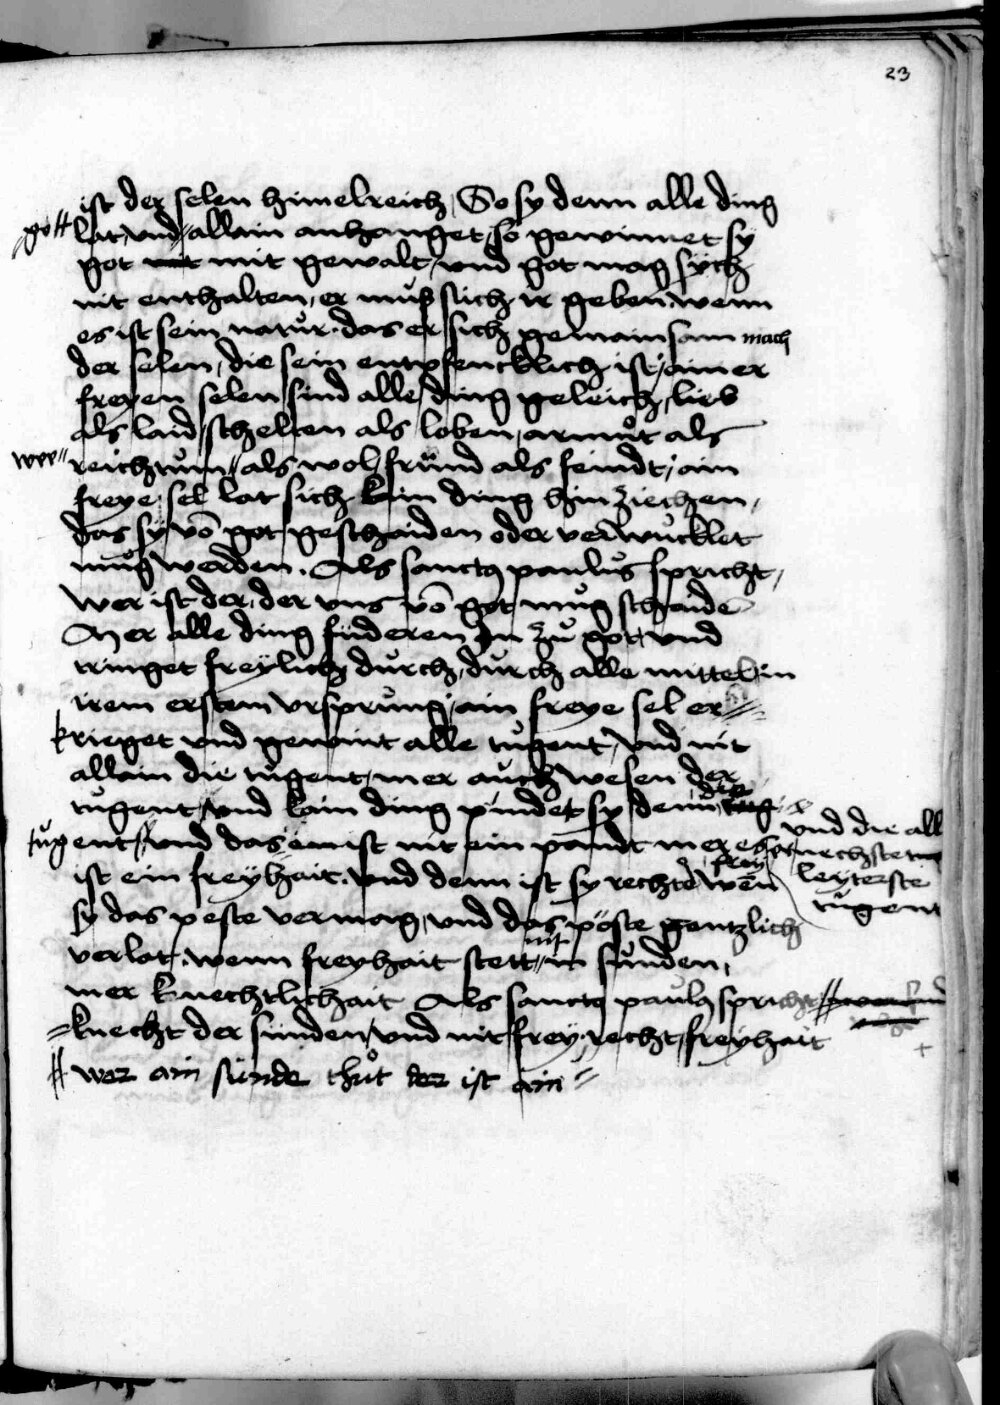 23
ist der selen himelreich, So sy denn alle ding
got lat, und allain anhanget, so gewinnet sy
got mit gewalt, und got mag sich
nit enthalten, er muß sich ir geben, wenn
es ist sein natur das er sich gemainsam mach
der selen, die sein entpfencklich ist, ainer
freyen selen sind alle ding geleich, lieb
als laid, schelten als loben, armůt als
reichtum, als wol fründ als feindt, ain
freye sel lat sich kain ding hin ziechen,
das sy vō got geschaiden oder verwücklet
müg werden. Als sanctus paulus spricht,
Wer ist der, der uns vō got müg schaide
Mer alle ding füderen zů got, und
tringet freylich durch, durch alle mittel in
irem ersten ursprung, ain freye sel er
krieget und gewint alle tugent, und nit
allain die tugent, mer auch wesen der
tugent, und kain ding pindet sy denn die
tugent, und das ist nit ein pandt mer es
und die all
leyterste
tugent
ist ein freyhait. und denn ist sy rechte frey wen
sy das peste vermag, und das pöste gentzlich
verlat. wenn freyhait stett nit in sünden,
mer knechtlichait Als sanctus paulus spricht
knecht der sünden, und nit frey, recht, freyhait
wer ain sünde thůt der ist ain